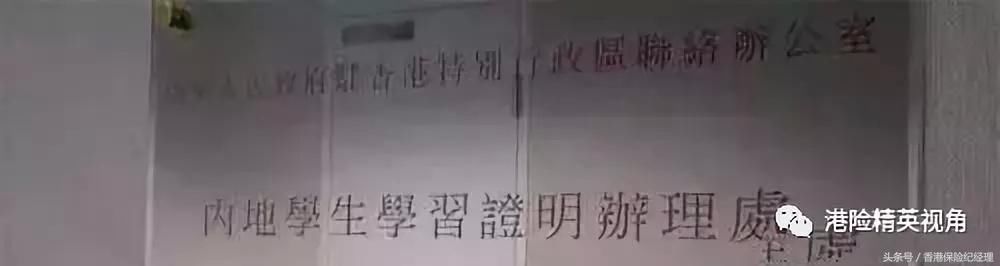 人民政府駐香港特別行政區聯絡辦公室
內地學生學習證明辦理處
港险精英视角
头条号／香港保险纪经理